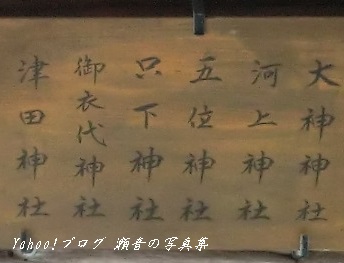 大神神社
河上神社
五位神社
只下神社
御衣代神社
津田神社
Yahoo!ブログ 瀬音の写真集